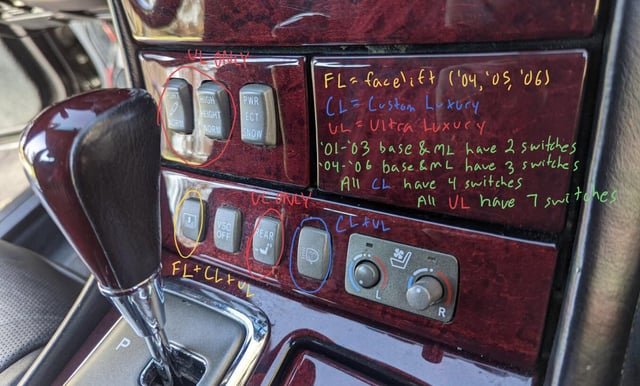 UL ONLY
HIGH
HEIGHT
NORM
PWR
ECT
SNOW
FL = facelift ('04,'05,'06)
CL = Custom Luxury
UL = Ultra Luxury
'01-'03 base & ML have 2 switches
'04-'06 base & ML have 3 switches
All CL have 4 switches
All UL have 7 switches
UL ONLY
VSC
OFF
REAR
CL + UL
FL + CL + UL
L
R
P